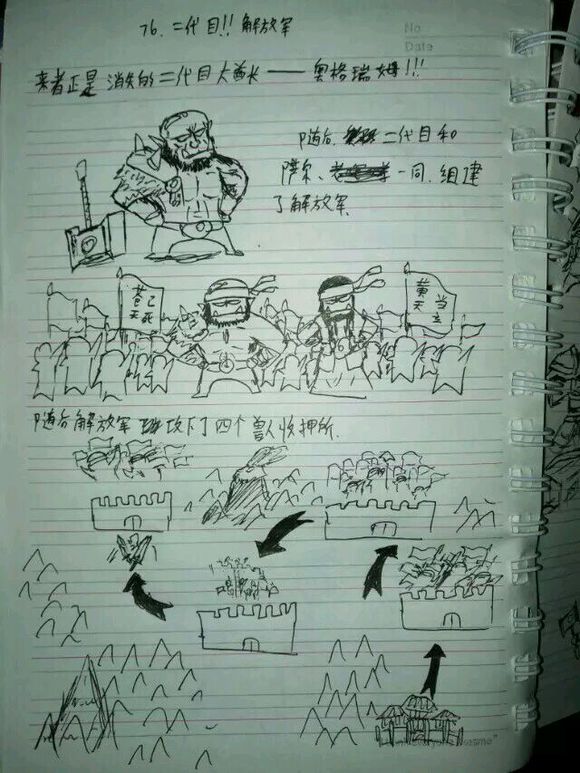 76. 二代目!! 解放军
No
Date
来者正是 消失的二代目大酋长——奥格瑞姆!!!
随后, 二代目和
萨尔、一同, 组建
了解放军
苍天已死
黄天当立
随后解放军 攻下了四个兽人收押所.